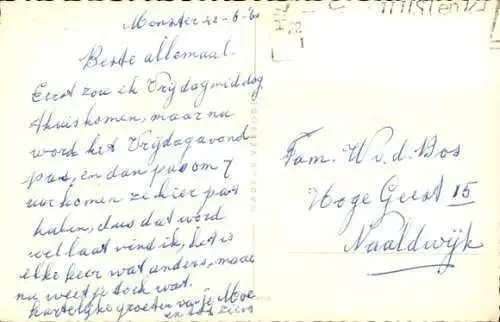 Monster 22-6-60
Beste allemaal.
Eerst zou ik Vrijdagmiddag
thuiskomen, maar nu
word het Vrijdagavond
pas, en dan pas om 7
uur komen ze hier pas
halen, dus dat word
wel laat vind ik, het is
elke keer wat anders, maar
nu weet je toch wat.
hartelijke groeten van je Moe
en tot ziens
Fam. W. v. d. Bos
Hoge Geest 15
Naaldwijk